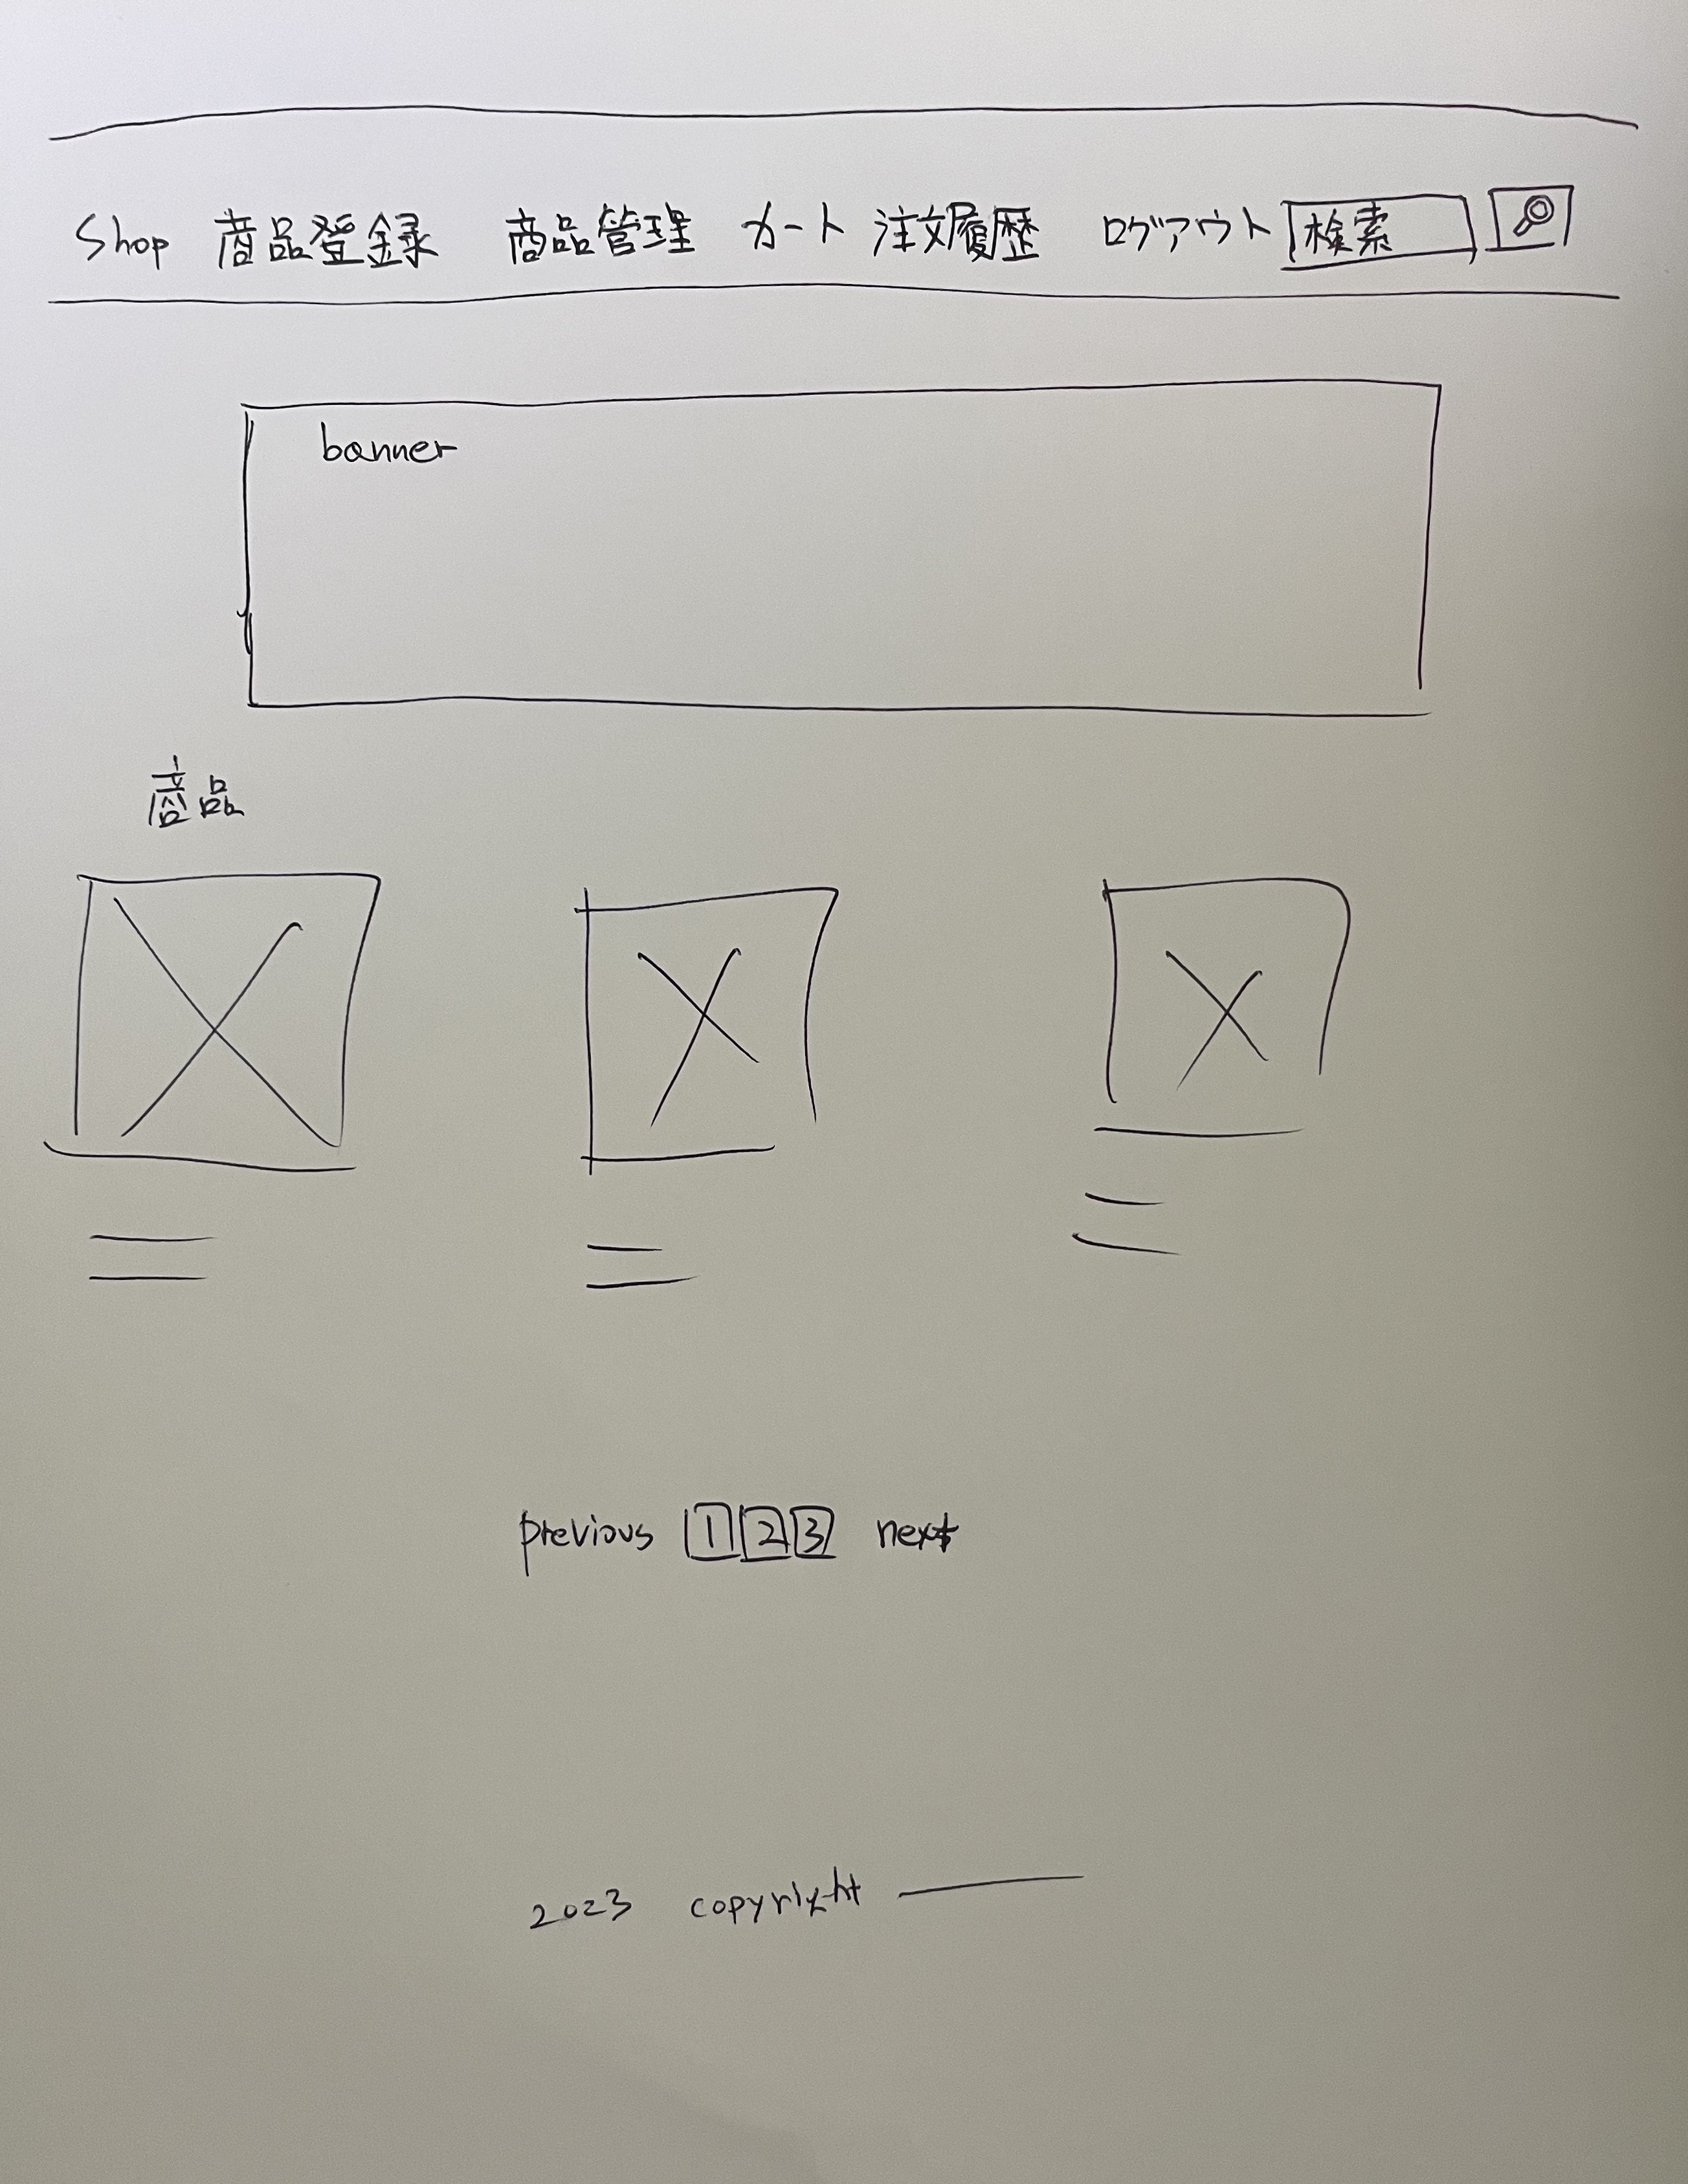 Shop 商品登録 商品管理 カート 注文履歴 ログアウト 検索
banner
商品
previous 1 2 3 next
2023 copyright